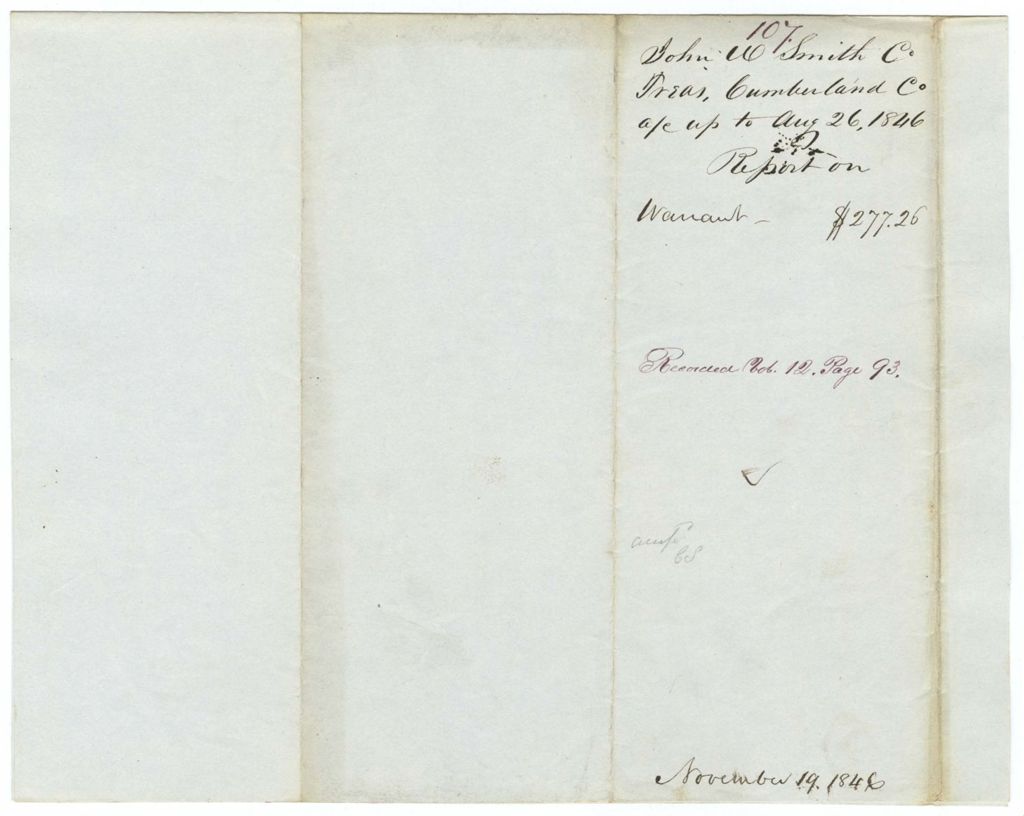 107.
John W Smith Co
Treas, Cumberland Co
a/c up to Aug 26, 1846
Report on
Warrant - $277.26
Recorded Vol. 12. Page 93.
November 19. 1846